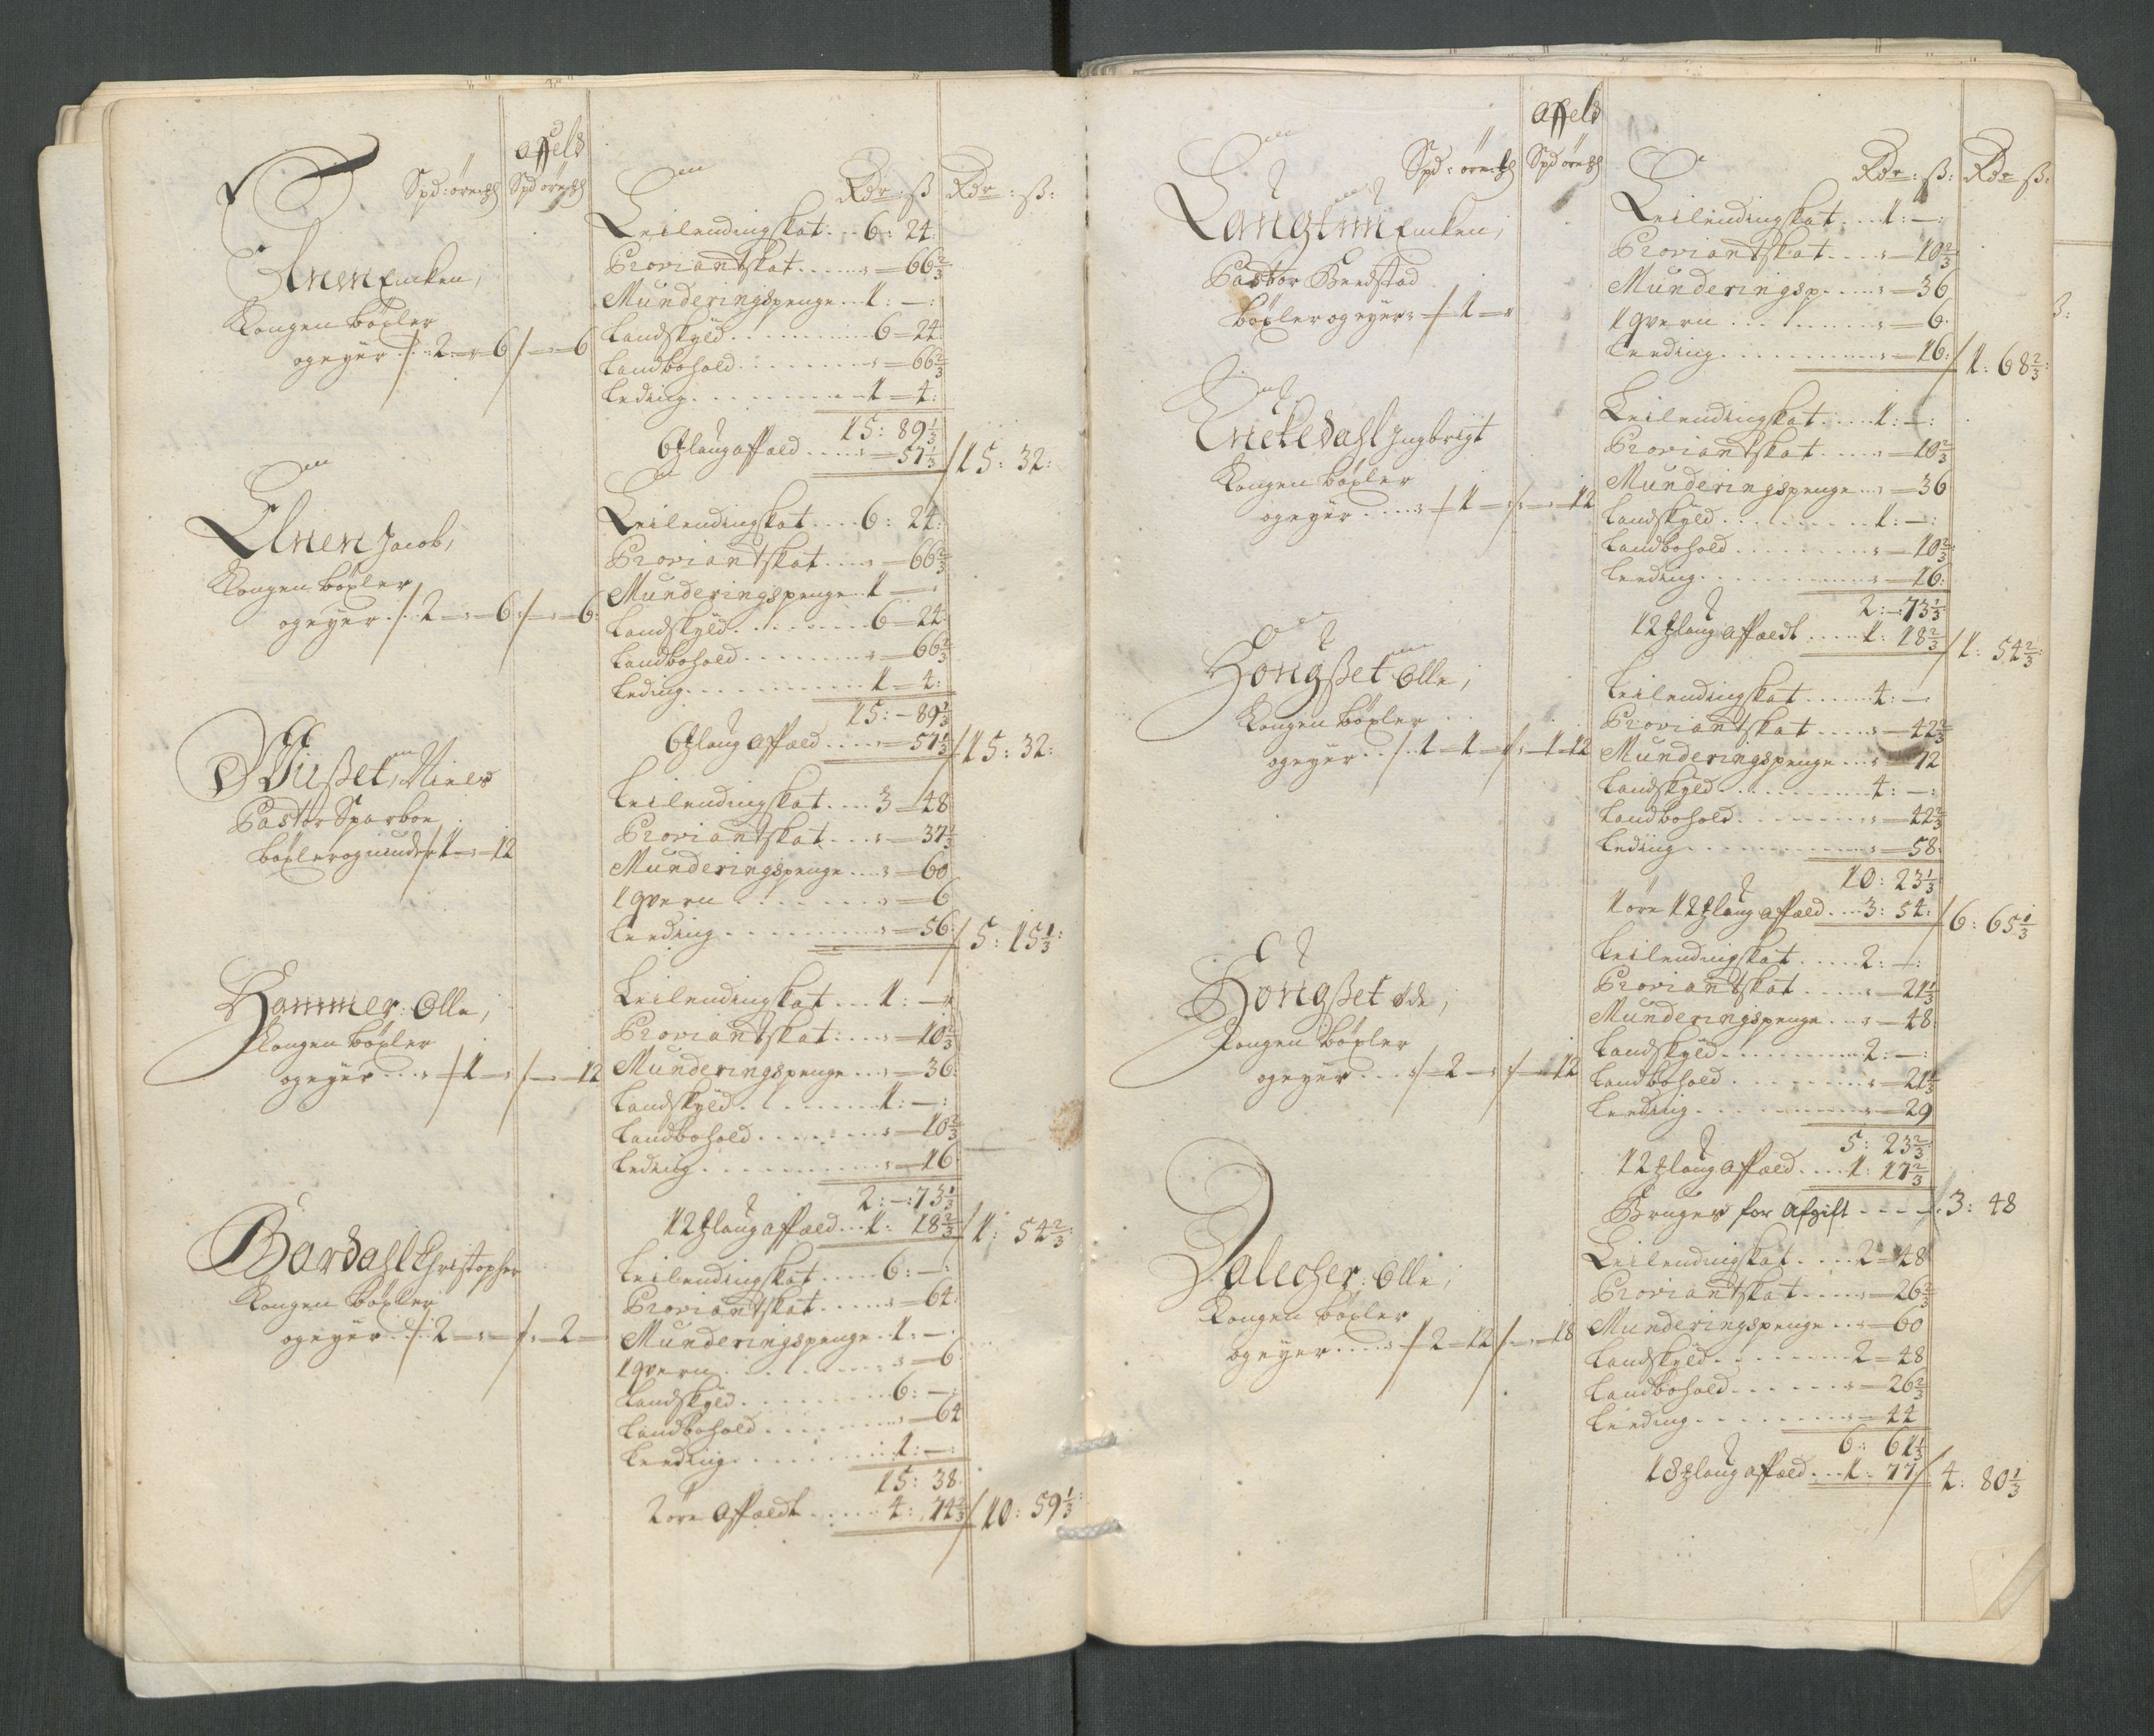 affeld
Spd: öre: Spd öre Rdr: ß Rdr: ß:
Elnen Encken,
Kongen böxler
og eyer ./. 2 – " – 6 /. – " – 6
Leilendingskat . . . 6: 24:
Proviantskat . . . . . " – 66 2/3
Munderingspenge . . 1: – :
Landskyld . . . . . . . . 6 – 24:
Landbohold . . . . . . . " – 66 2/3
Leding . . . . . . . . . 1 – 4:
15: 89 1/3
6 laug affald . . . . " – 57 1/3 / 15: 32:
Elnen Jacob,
Kongen böxler
og eyer ./. 2 – " – 6 /. – " – 6:
Leilendingskat . . . . 6: 24:
Proviantskat . . . . " – 66 2/3
Munderingspenge . . 1 – :
Landskyld . . . . . . . . 6 – 24:
Landbohold . . . . . . . " – 66 2/3
Leding . . . . . . . . . 1 – 4:
15: – 89 1/3
6 laug affald . . . . " – 57 1/3 / 15: 32:
Niels
Pastor Sparboe
böxler og / 1 – " – 12
Leilendingskat . . . . 3 – 48
Proviantskat . . . . " – 37 1/3
Munderingspenge . . . " – 60
1 qvern . . . . . . . . " – 6
Leeding . . . . . . . . " – 56 / 5: 15 1/3:
Hammer: Olle,
Kongen böxler
og eyer . . . " / 1 – " /. – " – 12
Leilendingskat . . . 1: – "
Proviantskat: . . . " – 10 2/3
Munderingspenge . . . " – 36:
Landskyld . . . . . . . . 1: – :
Landbohold . . . . . . . " – 10 2/3
Leding . . . . . . . . . " – 16
2: – : 73 1/3
12 laug affald . . . 1: 18 2/3 / 1: 54 2/3:
Bardahl Christopher
Kongen böxler
og eyer . ./. 2 – " – /. " – 2 –
Leilendingskat . . . . . 6: – :
Proviantskat . . . . . " – 64:
Munderingspenge . . 1: – :
1 qvern . . . . . . . . " – 6
Landskyld . . . . . . . . 6: – :
Landbohold . . . . . . . " – 64
Leeding . . . . . . . . 1: – :
15: 38:
2 öre affaldt . . . . . 4: 74 2/3 / 10: 59 1/3:
affeld
Spd: öre: Spd öre Rdr: ß: Rdr ß:
Encken,
Pastor Bredstad
böxler og eyer " / 1 – "
Leilendingskat . . . 1: – :
Proviantskat . . . . " – 10 2/3
Munderingsp . . . . . " – 36
1 qvern . . . . . . . . " – 6:
Leeding . . . . . . . . . " – 16: / 1: 68 2/3:
Ingbrigt
Kongen böxler
og eyer . . . . " / 1 – " /. – " – 12
Leilendingskat . . . . 1: – :
Proviantskat . . . . " – 10 2/3
Munderingspenge . . " – 36
Landskyld . . . . . . . . . 1: – :
Landbohold . . . . . . . . " – 10 2/3
Leeding . . . . . . . . . " – 16:
2: – : 73 1/3
12 laug affaldt . . . . . 1: 18 2/3 / 1: 54 2/3:
Hongßet Olle,
Kongen böxler
og eyer . . ./. 1 – 1 – /. " – 1 – 12
Leilendingskat . . . . . 4: –
Proviantskat . . . . . " – 42 2/3
Munderingspenge . . . " – 72
Landskyld . . . . . . . . . 4: – :
Landbohold . . . . . . . . " – 42 2/3
Leding . . . . . . . . . . " – 58:
10: 23 1/3
1 öre 12 laug affald . . . 3: 54: / 6: 65 1/3
Hongßet öde,
Kongen böxler
og eyer . . . " /. – 2 – " /. – " – 12
Leilendingskat . . . . . 2: – :
Proviantskat . . . . . " – 21 1/3
Munderingspenge . . . " – 48:
Landskyld . . . . . . . . . 2: – :
Landbohold . . . . . . . . " – 21 1/3
Leeding . . . . . . . . . " – 29
5: 23 2/3:
12 laug affald . . . . 1: 17 2/3
Bruges for afgift . . . . . / . 3: 48
Dalecher: Olle,
Kongen böxler
og eyer . . . . " / 2 – 12 /. – " – 18
Leilendingskat . . . . 2 – 48
Proviantskat . . . . . " – 26 2/3
Munderingspenge . . " – 60
Landskyld . . . . . . . . 2 – 48
Landbohold . . . . . . . " – 26 2/3
Leeding . . . . . . . . " – 44
6: 61 1/3
18 laug affald . . . 1: 77 / 4: 80 1/3